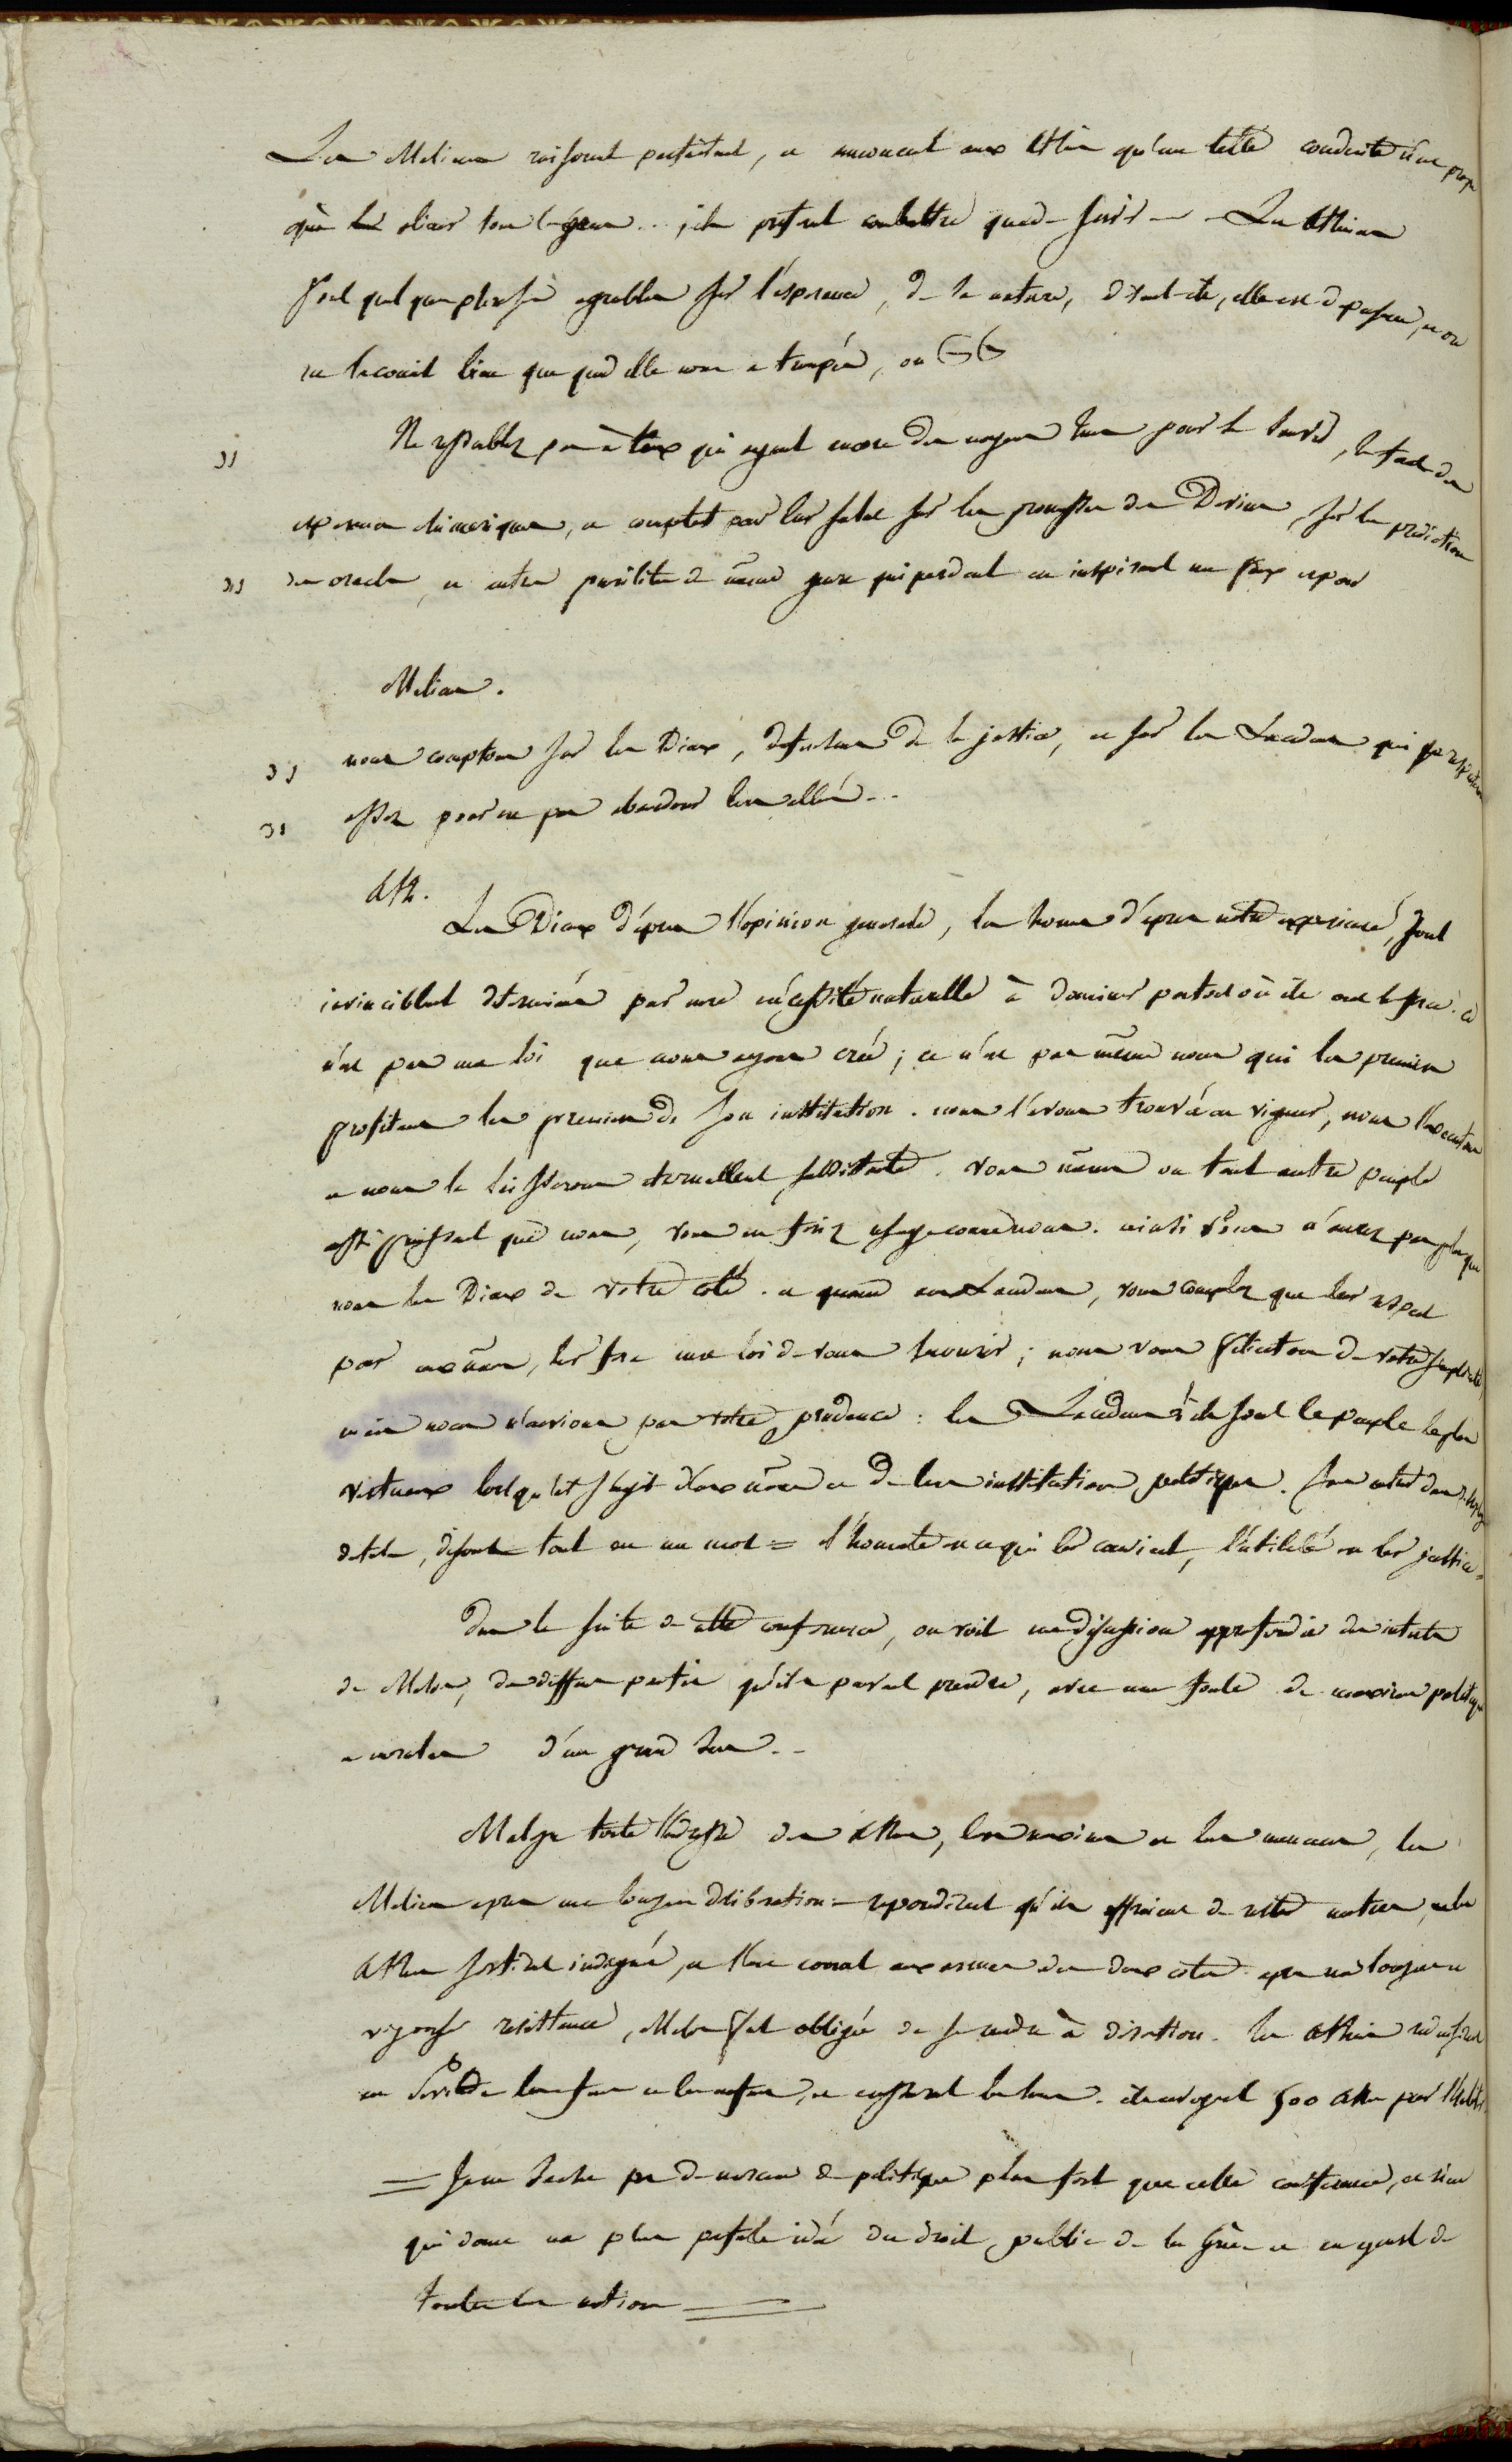 Les Meliens raisonnent parfaitement, et annoncent aux Athen qu'une telle conduite n'est propre
qu'à leur aliener tous les grecs... ils preferent combattre que de servir — Les Atheniens
font quelques plaisanteries agreables sur l'esperance, de sa nature, disent-ils, elle est depensiere, et on
ne la connoit bien que quand elle nous a trompés, ou
Ne ressemblez pas à ceux qui ayant encore des moyens humains pour se sauver, se font des
esperances chimeriques, et comptent pour leur salut sur les promesses des Devins, sur les predictions
des oracles, et autres puerilités de même genre qui perdent en inspirant un faux espoir
Meliens.
nous comptons sur les Dieux, defenseurs de la justice, et sur les Lacedem qui se respectent
assez pour ne pas abandonner leurs alliés...
Ath.
Les Dieux d'après l'opinion generale, les hommes d'après notre experience, sont
invinciblement determinés par une nécessité naturelle à dominer partout où ils ont la force. ce
n'est pas une loi que nous ayons créé; ce n'est pas même nous qui les premiers
profitons les premiers de son institution. nous l'avons trouvée en vigueur, nous l'executons
et nous la laisserons eternellement subsistante. vous mêmes ou tout autre peuple
aussi puissant que nous, vous en feriez usage comme nous. ainsi vous n'aurez pas plus que
nous les Dieux de votre coté. et quand aux Lacedem, vous comptez que leur respect
pour eux mêmes, leur fera une loi de vous secourir; nous vous felicitons de votre simplicité,
mais nous n'envions pas votre prudence: les Lacedem. ils sont le peuple le plus
vertueux lorsqu'il s'agit d'eux mêmes et de leurs institutions politiques. sans entrer dans de longs
details, disons tout en un mot = l'honnête est ce qui leur convient, l'utilité est leur justice =
dans la suite de cette conference, on voit une discussion approfondie des interets
de Melos, des differens partis qu'ils peuvent prendre, avec une foule de maximes politiques
et morales d'un grand sens..
Malgré toute l'adresse des Athen, leurs maximes et leurs menaces, les
Meliens après une longue deliberation = repondirent qu'ils offroient de rester neutres, et les
Athen sortirent indignés, et l'on courut aux armes des deux cotés. après une longue et
vigoureuse resistance, Melos fut obligée de se rendre à discretion. les Atheniens reduisirent
en servitude les femmes et les enfans, et egorgerent les hommes. ils envoyerent 500 Athen pour l'habiter.
= Je ne sache pas de morceau de politique plus fort que cette conference, et rien
qui donne une plus parfaite idée du droit public de la Grèce et en general de
toutes les nations =